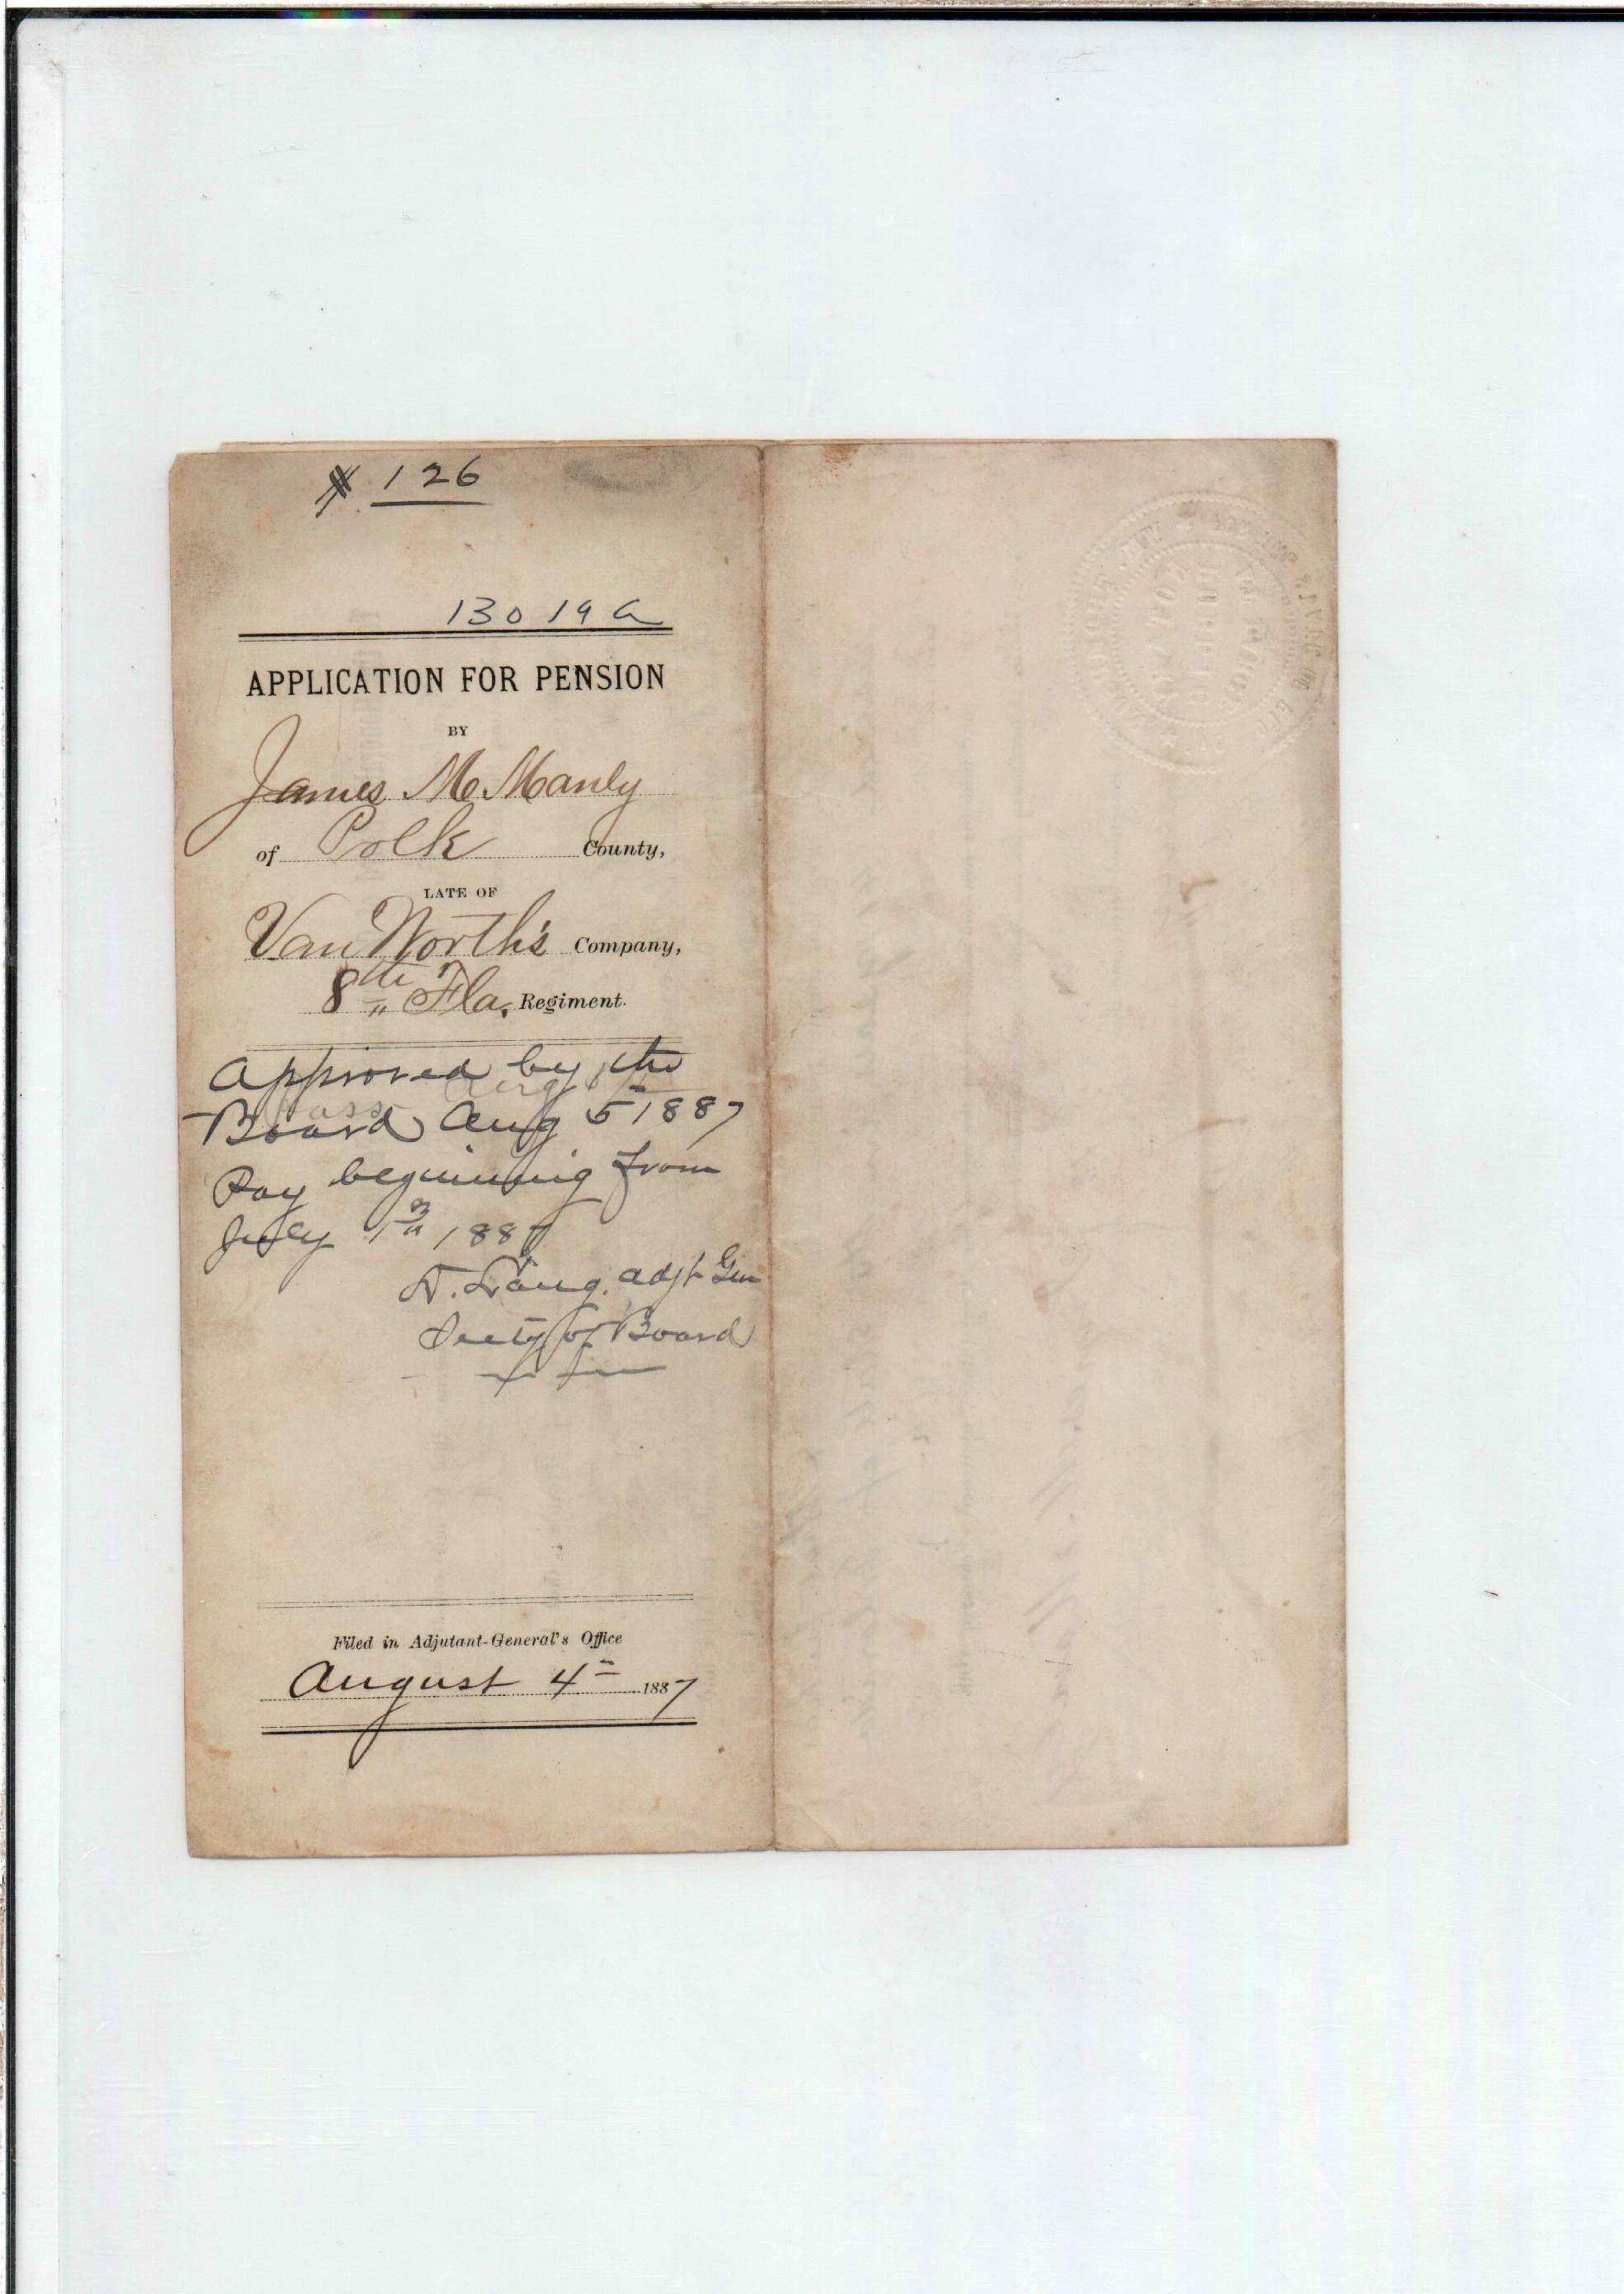 # 126
13019 a
APPLICATION FOR PENSION
BY
James M. Manly
of Polk County,
LATE OF
Van North's Company,
8th Fla. Regiment.
Approved by the
Board Aug 5 1887
Pay beginning from
July 1887
D. Lang, adjt Gen
Secty of Board
Filed in Adjutant-General's Office
August 4 1887